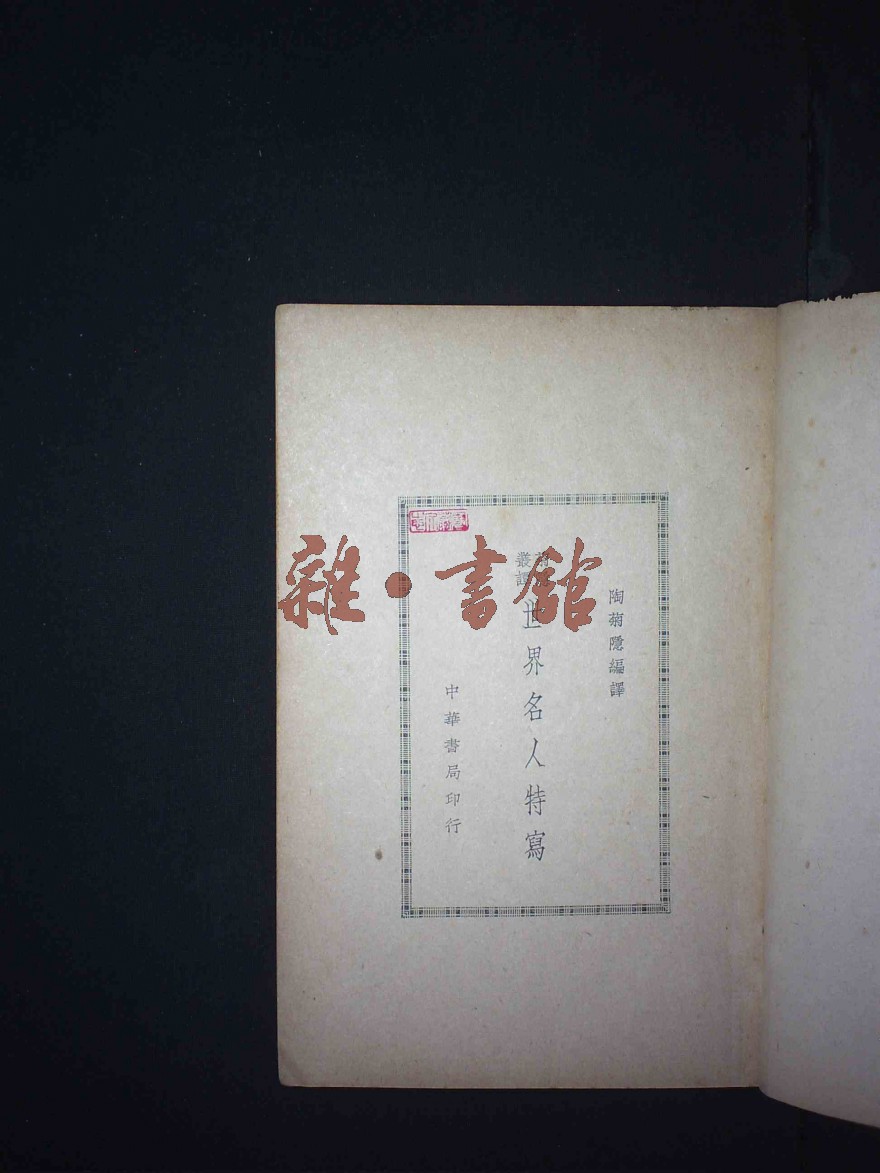 陶菊隱編譯
叢譯
世界名人特寫
中華書局印行
雜·書館